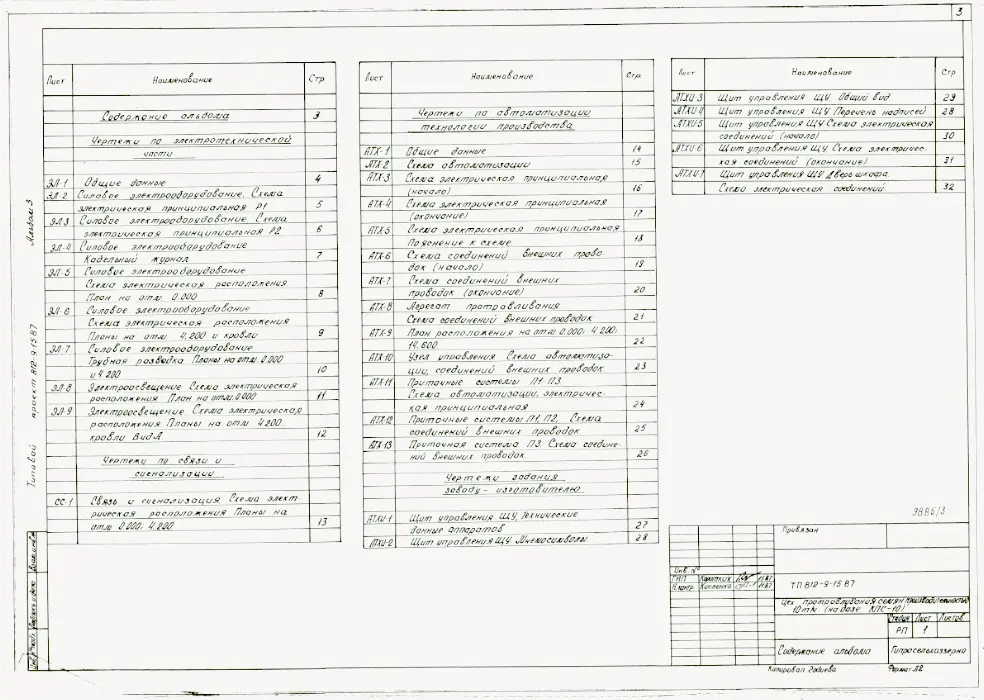 3
Лист Наименование Стр
Содержание альбома 3
Чертежи по электротехнической
части
ЭЛ-1 Общие данные 4
ЭЛ-2 Силовое электрооборудование. Схема
электрическая принципиальная Р1 5
ЭЛ-3 Силовое электрооборудование. Схема
электрическая принципиальная Р2 6
ЭЛ-4 Силовое электрооборудование
Кабельный журнал 7
ЭЛ-5 Силовое электрооборудование
Схема электрическая расположения
План на отм. 0.000 8
ЭЛ-6 Силовое электрооборудование
Схема электрическая расположения
Планы на отм. 4.200 и кровли 9
ЭЛ-7 Силовое электрооборудование
Трубная разводка Планы на отм. 0.000
и 4.200 10
ЭЛ-8 Электроосвещение Схема электрическая
расположения План на отм. 0.000 11
ЭЛ-9 Электроосвещение. Схема электрическая
расположения. Планы на отм 4.200.
кровли Вид А 12
Чертежи по связи и
сигнализации
СС-1 Связь и сигнализация. Схема элект-
рическая расположения Планы на
отм 0.000; 4.200 13
Лист Наименование Стр.
Чертежи по автоматизации
технологии производства
АТХ-1 Общие данные 14
АТХ-2 Схема автоматизации 15
АТХ-3 Схема электрическая принципиальная
(начало) 16
АТХ-4 Схема электрическая принципиальная
(окончание) 17
АТХ-5 Схема электрическая принципиальная
Пояснение к схеме 18
АТХ-6 Схема соединений внешних прово-
док (начало) 19
АТХ-7 Схема соединений внешних
проводок (окончание) 20
АТХ-8 Агрегат протравливания
Схема соединений внешних проводок 21
АТХ-9 План расположения на отм. 0.000; 4.200;
14.600 22
АТХ-10 Узел управления Схема автоматиза-
ции, соединений внешних проводок 23
АТХ-11 Приточные системы П1-П3.
Схема автоматизации, электричес-
кая принципиальная 24
АТХ-12 Приточные системы П1, П2. Схема
соединений внешних проводок 25
АТХ-13 Приточная система П3. Схема соедине-
ний внешних проводок. 26
Чертежи задания
заводу-изготовителю
АТХИ-1 Щит управления ЩУ, Технические
данные аппаратов 27
АТХИ-2 Щит управления ЩУ Мнемосимволы 28
Лист Наименование Стр
АТХИ-3 Щит управления ЩУ. Общий вид 29
АТХИ-4 Щит управления ЩУ Перечень надписей 28
АТХИ-5 Щит управления ЩУ Схема электрическая
соединений (начало) 30
АТХИ-6 Щит управления ЩУ Схема электричес-
кая соединений (окончание) 31
АТХИ-7 Щит управления ЩУ Дверь шкафа.
Схема электрическая соединений 32
Альбом 3
Типовой проект 812-9-15.87
3885/3
Привязан
Инв. №
ГИП Коротких 11.87
Н.контр. 11.87
ТП 812-9-15.87
Цех протравливания семян производительностью
10 т/ч (на базе КПС-10)
Стадия Лист Листов
РП 1
Содержание альбома
Гипросельхоззерно
Копировал
Формат А2